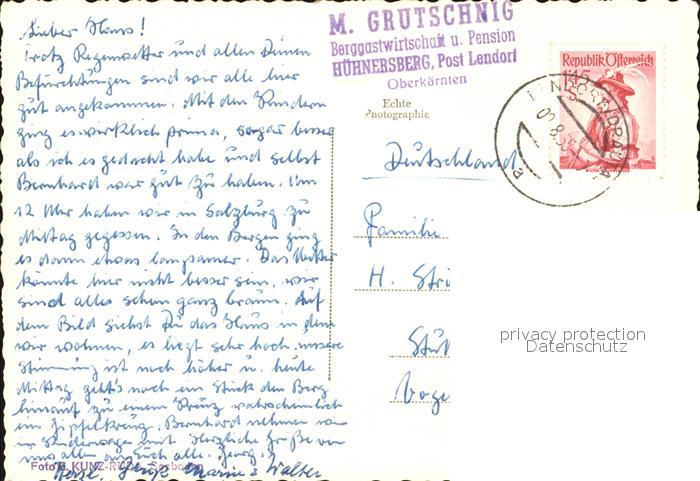 Lieber Hans!
Trotz Regenwetter und allen Deinen
Befürchtungen sind wir alle hier
gut angekommen. Mit den Kindern
ging es wirklich prima, sogar besser
als ich es gedacht habe und selbst
Bernhard war gut zu haben. Um
12 Uhr haben wir in Salzburg zu
Mittag gegessen. In den Bergen ging
es dann etwas langsamer. Das Wetter
könnte hier nicht besser sein, wir
sind alle schon ganz braun. Auf
dem Bild siehst Du das Haus in dem
wir wohnen, es liegt sehr hoch. unsere
Stimmung ist noch höher u. heute
Mittag geht's noch ein Stück den Berg
hinauf zu einem Kreuz wahrscheinlich
ein Gipfelkreuz, Bernhard nehmen wir
im Kinderwagen mit. Herzliche Grüße von
uns allen an Euch alle.
Marie & Walter
Foto H. KUNZ-RUDA, Seeboden
M. GRUTSCHNIG
Berggastwirtschaft u. Pension
HÜHNERSBERG, Post Lendorf
Oberkärnten
Echte
Photographie
Republik Österreich
1.45
Deutschland
Familie
H. Stri
Stut
Voge
privacy protection
Datenschutz